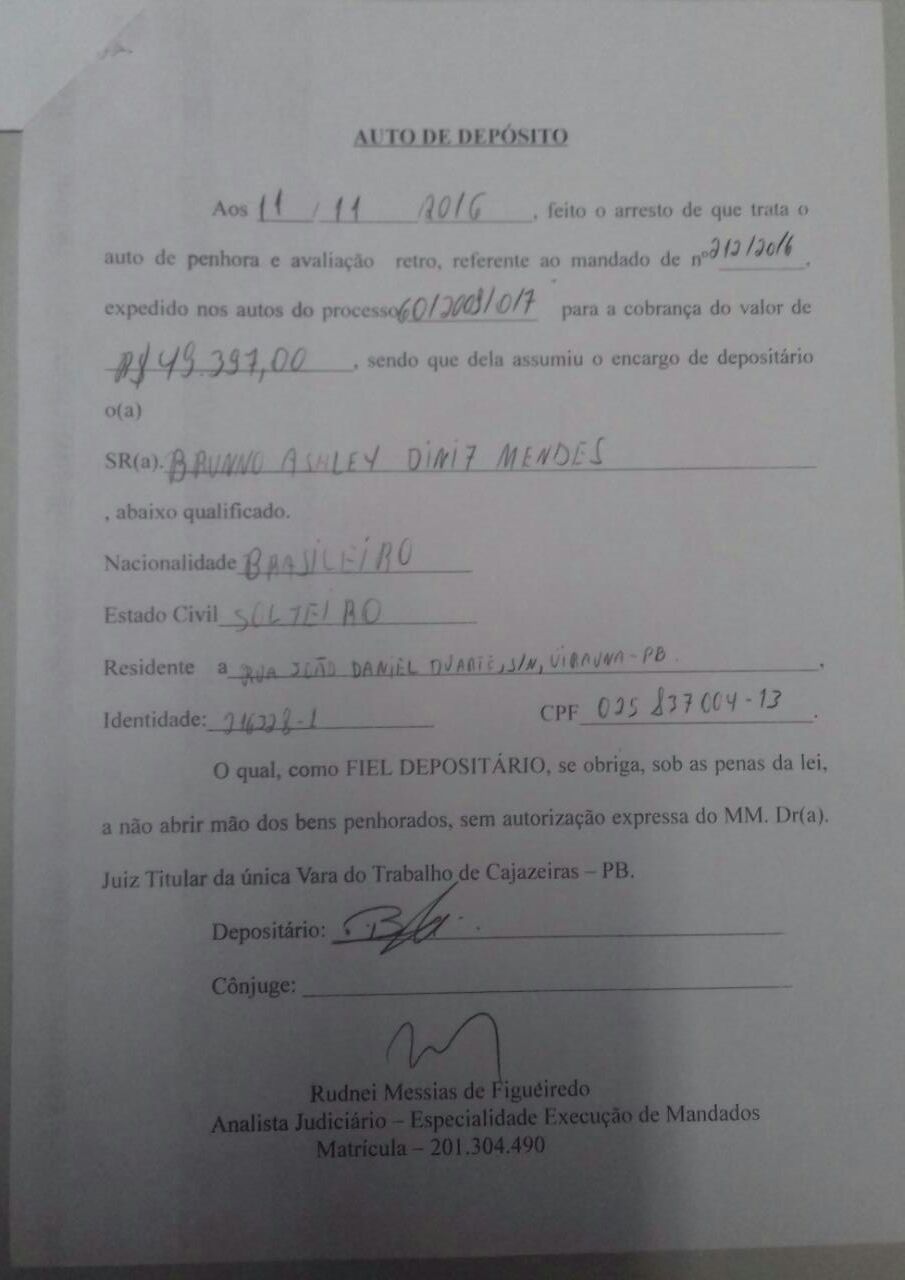 AUTO DE DEPÓSITO
Aos 11 / 11 2016, feito o arresto de que trata o
auto de penhora e avaliação retro, referente ao mandado de nº 212/2016,
expedido nos autos do processo 60/2009/017 para a cobrança do valor de
R$ 49.397,00, sendo que dela assumiu o encargo de depositário
o(a)
SR(a). BRUNNO ASHLEY DINIZ MENDES
, abaixo qualificado.
Nacionalidade BRASILEIRO
Estado Civil SOLTEIRO
Residente a RUA JOÃO DANIEL DUARTE, S/N, UIRAUNA-PB.,
Identidade: CPF 025 837004-13.
O qual, como FIEL DEPOSITÁRIO, se obriga, sob as penas da lei,
a não abrir mão dos bens penhorados, sem autorização expressa do MM. Dr(a).
Juiz Titular da única Vara do Trabalho de Cajazeiras – PB.
Depositário:
Cônjuge:
Rudnei Messias de Figueiredo
Analista Judiciário – Especialidade Execução de Mandados
Matrícula – 201.304.490